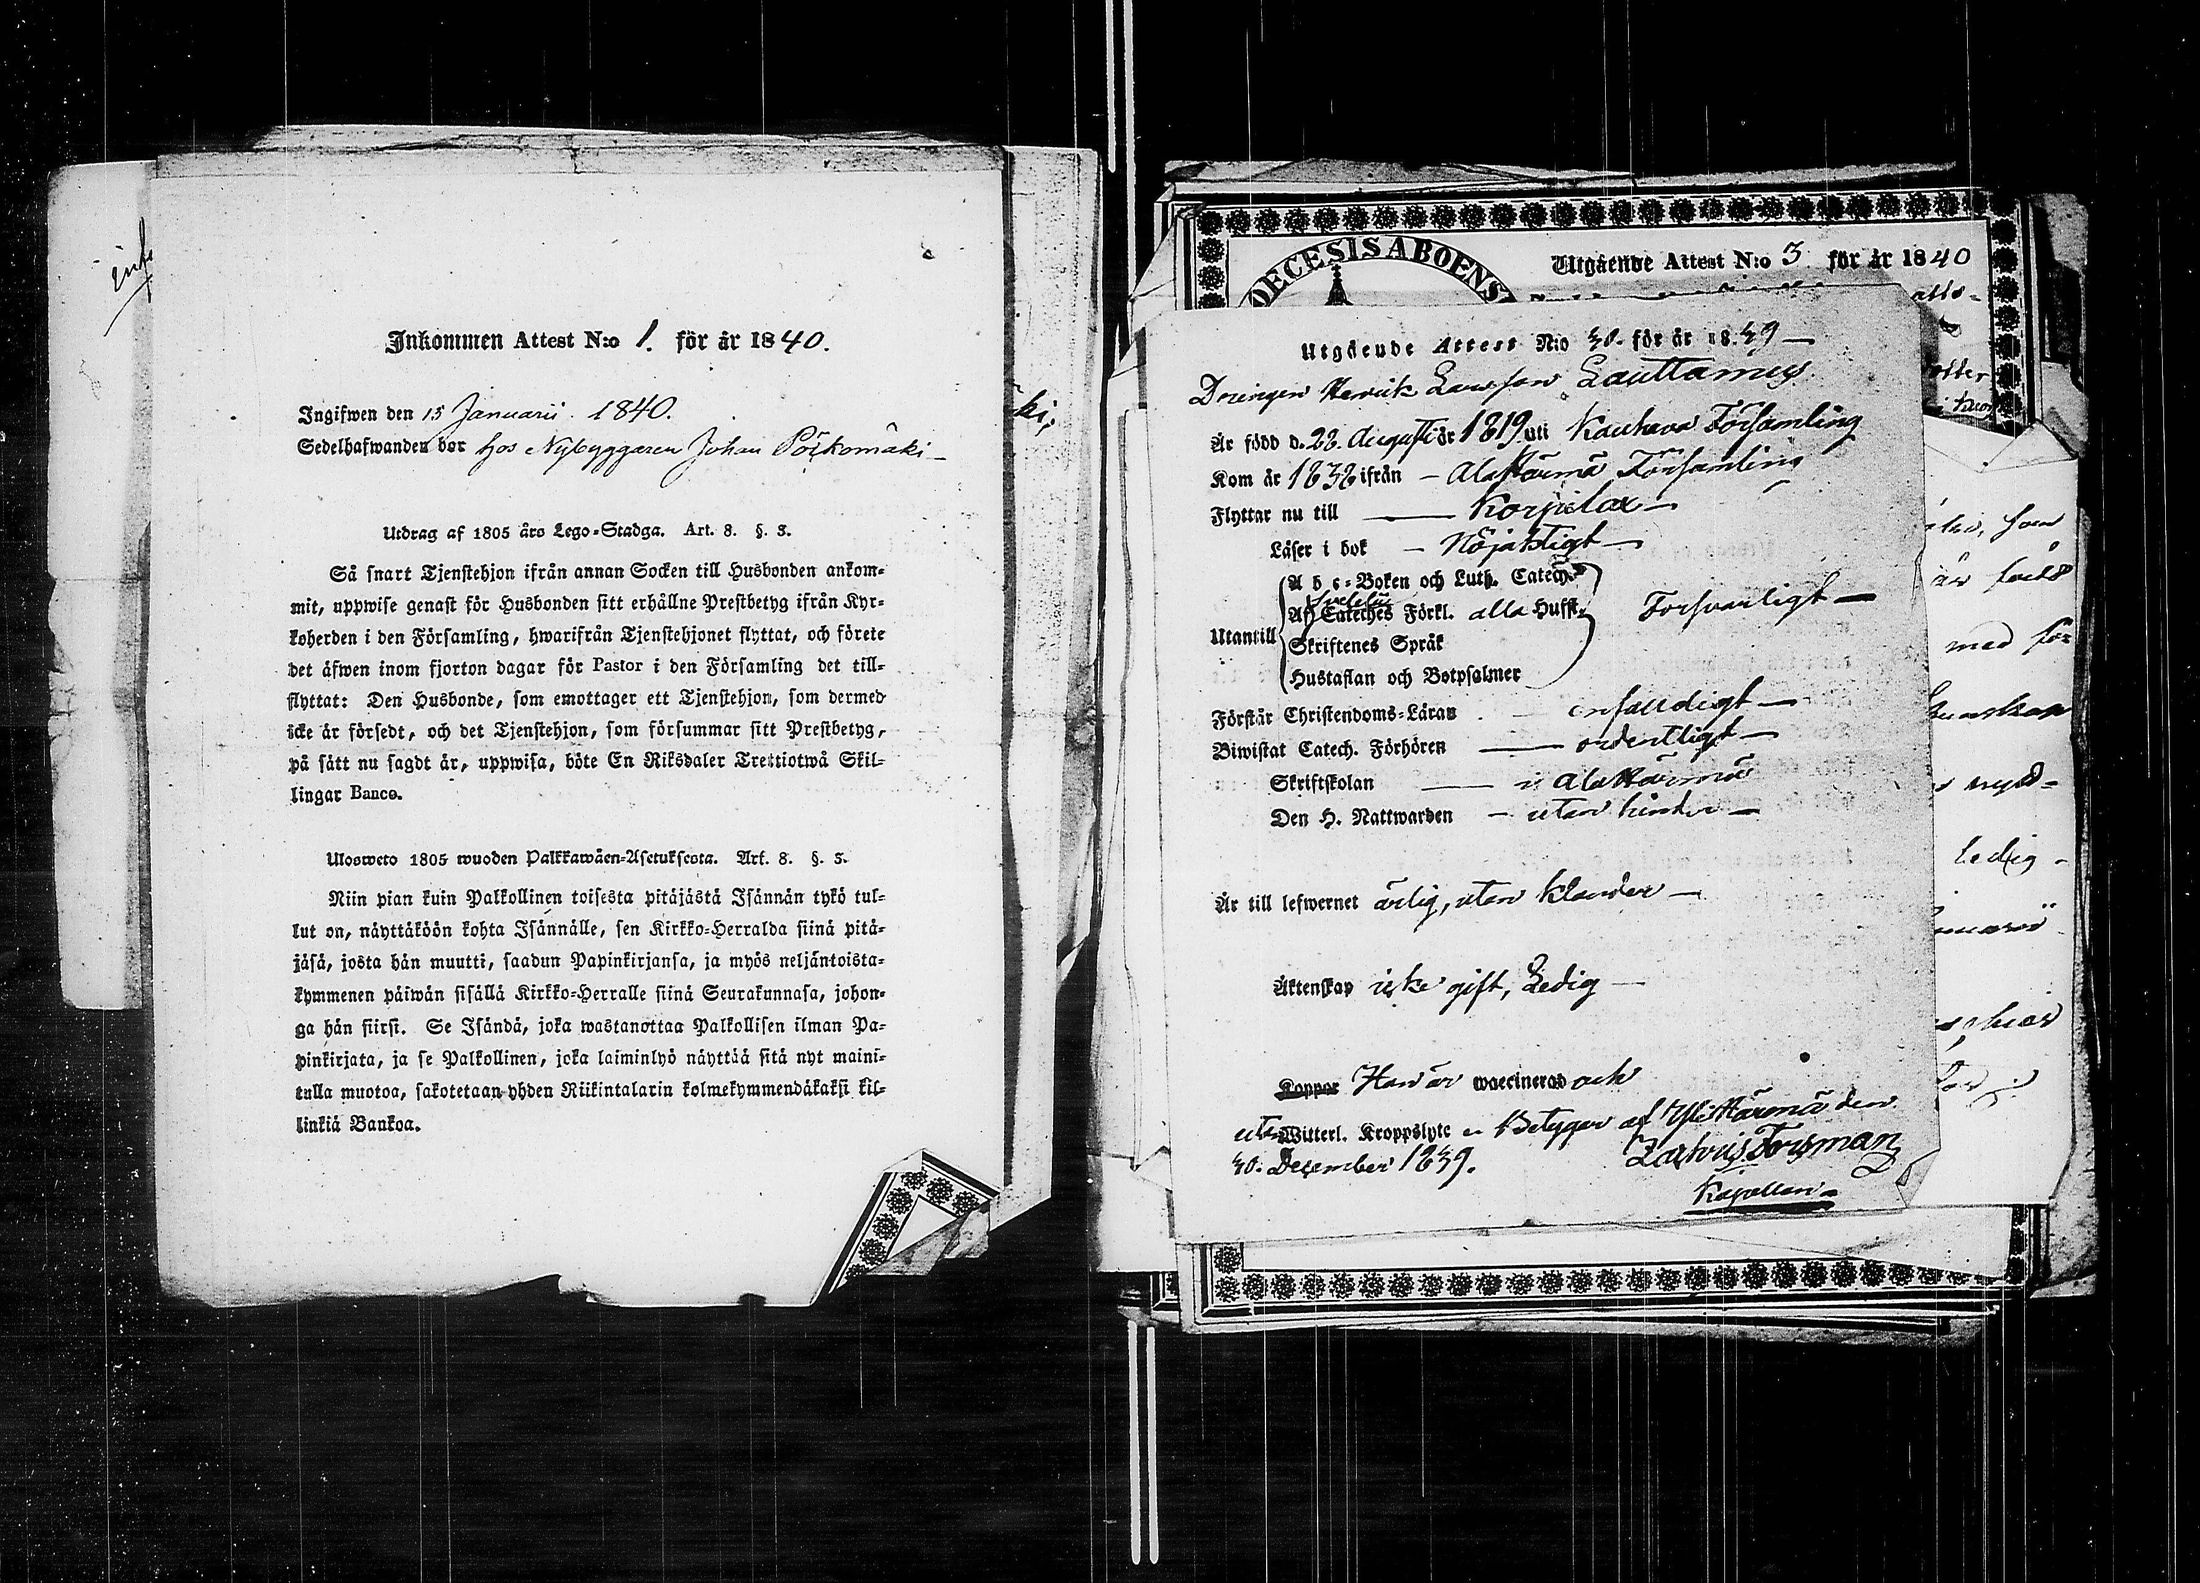 Inkommen Attest N:o 1. för år 1840.
Ingifwen den 15 Januarii. 1840.
Sedelhafwanden bor hos Nybyggaren Johan Pörkomäki
Utdrag af 1805 års Lego-Stadga. Art. 8. §. 3.
Så snart Tjenstehjon ifrån annan Socken till Husbonden ankom-
mit, uppwise genast för Husbonden sitt erhållne Prestbetyg ifrån Kyr-
koherden i den Församling, hwarifrån Tjenstehjonet flyttat, och förete
det äfwen inom fjorton dagar för Pastor i den Församling det till-
flyttat: Den Husbonde, som emottager ett Tjenstehjon, som dermed
icke är försedt, och det Tjenstehjon, som försummar sitt Prestbetyg,
på sätt nu sagdt är, uppwisa, böte En Riksdaler Trettiotwå Skil-
lingar Banco.
Ulosweto 1805 wuoden Palkkawäen-Asetuksesta. Art. 8. §. 3.
Niin pian kuin Palkollinen toisesta pitäjästä Isännän tykö tul-
lut on, näyttäköön kohta Isännälle, sen Kirkko-Herralda siinä pitä-
jäsä, josta hän muutti, saadun Papinkirjansa, ja myös neljäntoista-
kymmenen päiwän sisällä Kirkko-Herralle siinä Seurakunnasa, johon-
ga hän siirsi. Se Isändä, joka wastanottaa Palkollisen ilman Pa-
pinkirjata, ja se Palkollinen, joka laiminlyö näyttää sitä nyt maini-
tulla muotoa, sakotetaan yhden Riikintalarin kolmekymmendäkaksi kil-
linkiä Bankoa.
ki,
DECESIS ABOENS
Utgående Attest N:o 3 för år 1840
Utgående Attest N:o 30. för år 1839
Drengen Henrik Larsson Lauttamus
Är född d. 28. Augusti år 1819 uti Kauhava Församling
Kom år 1838 ifrån Ala Härmä Församling
Flyttar nu till Korpilax
Läser i bok Nöjaktigt
A b c-Boken och Luth. Catech.
Af Cateches Förkl. alla Hufst. Forsvarligt
Utantill Skriftenes Språk
Hustaflan och Botpsalmer
Förstår Christendoms-Läran enfaldigt
Biwistat Catech. Förhören ordentligt
Skriftskolan i Ala Härmä
Den H. Nattwarden utan hinder
Är till lefwernet ärlig, utan klander
Äktenskap icke gift, Ledig
Koppor Han är waccinerad och
utan Witterl. Kroppslyte Betygar af Ylihärmä den
30. December 1839. Forsman
Kapellan
med för
kunskap
ledig